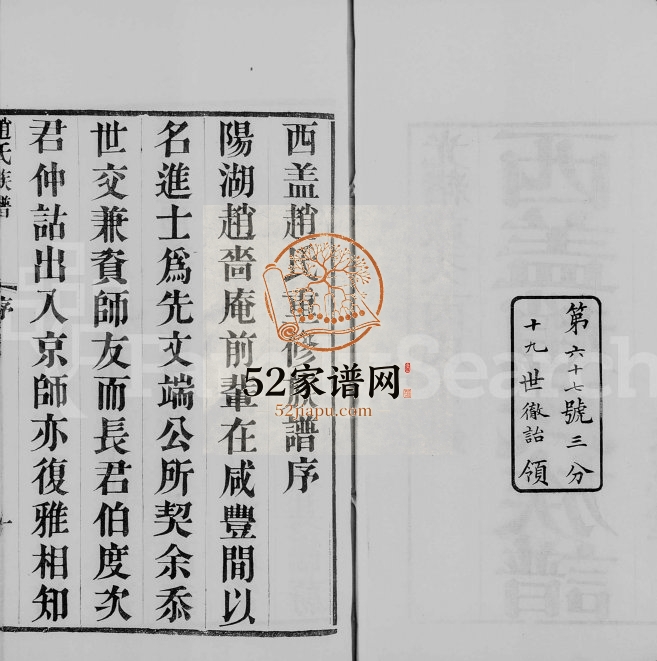 第六十七號三分
十九世徹詒領
西盖趙氏重修族譜序
陽湖趙嗇庵前輩在咸豐間以
名進士爲先文端公所契余忝
世交兼資師友而長君伯度次
君仲詁出入京師亦復雅相知
趙氏族譜
序
一
52家谱网
52jiapu.com
FamilySearch